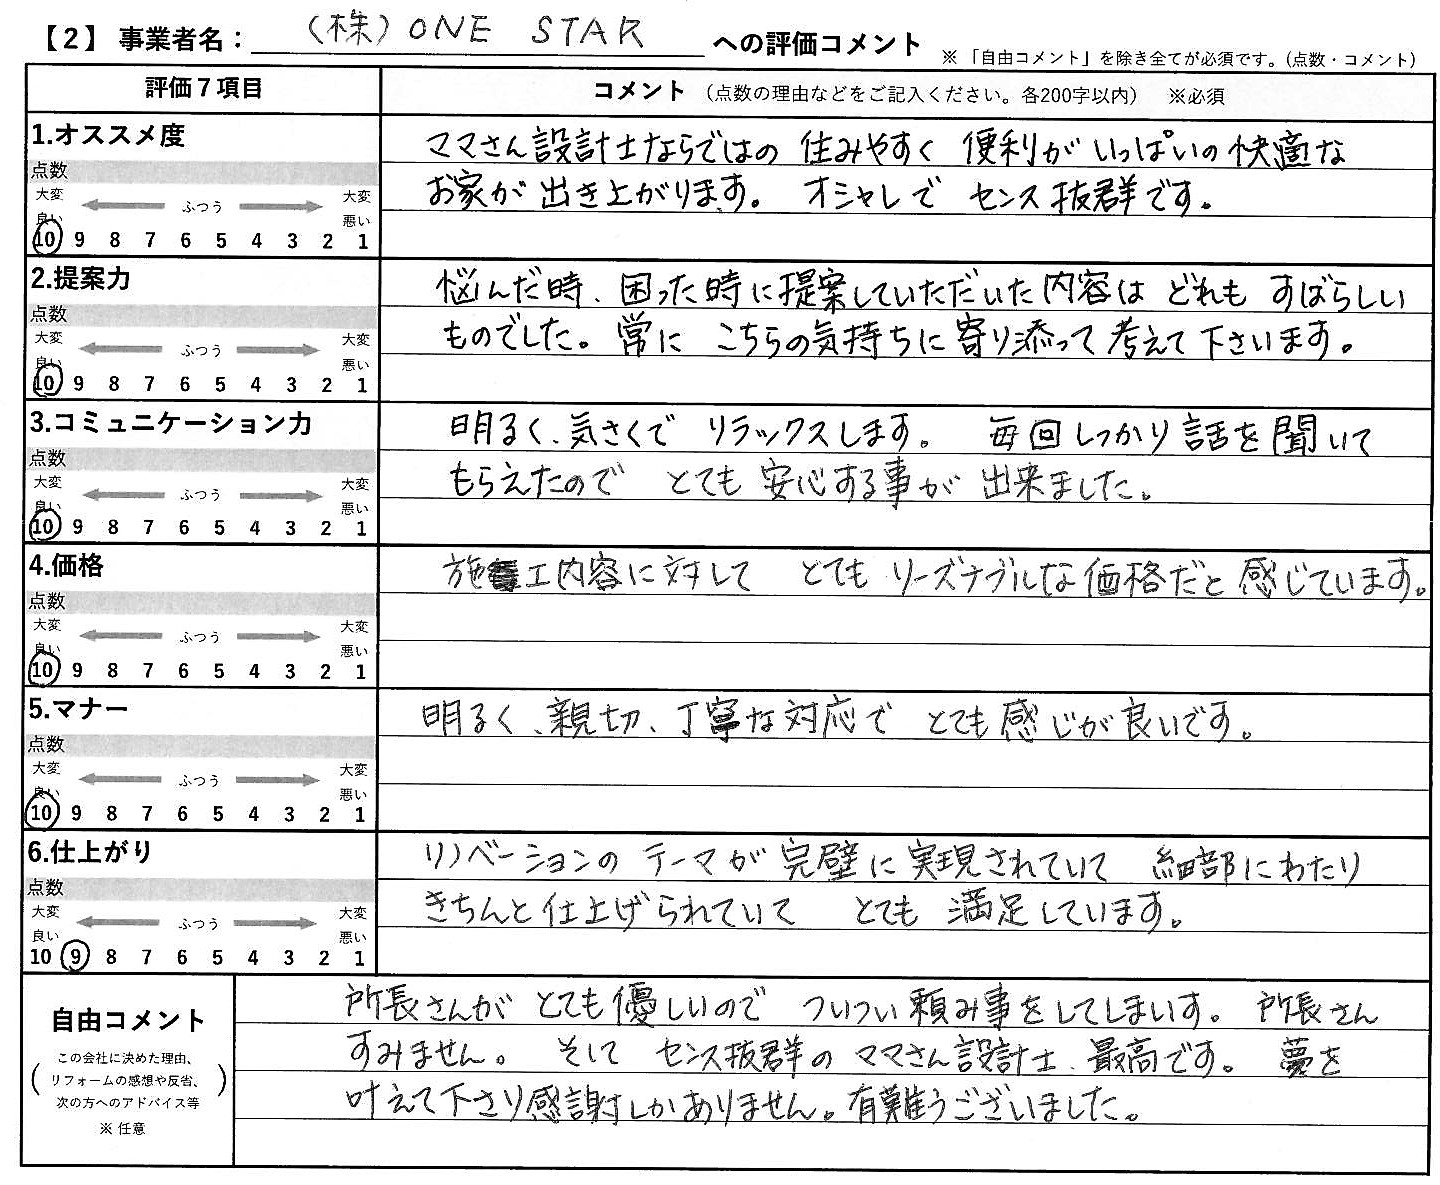 【2】 事業者名： (株) ONE STAR への評価コメント ※「自由コメント」を除き全てが必須です。(点数・コメント)
評価7項目 コメント （点数の理由などをご記入ください。各200字以内） ※必須
1.オススメ度
点数
大変良い ふつう 大変悪い
10 9 8 7 6 5 4 3 2 1
ママさん設計士ならではの 住みやすく 便利がいっぱいの快適な
お家が出き上がります。 オシャレで センス抜群です。
2.提案力
点数
大変良い ふつう 大変悪い
10 9 8 7 6 5 4 3 2 1
悩んだ時、困った時に提案していただいた内容は どれも すばらしい
ものでした。常に こちらの気持ちに寄り添って考えて下さいます。
3.コミュニケーション力
点数
大変良い ふつう 大変悪い
10 9 8 7 6 5 4 3 2 1
明るく、気さくで リラックスします。 毎回しっかり話を聞いて
もらえたので とても 安心する事が 出来ました。
4.価格
点数
大変良い ふつう 大変悪い
10 9 8 7 6 5 4 3 2 1
施工内容に対して とても リーズナブルな価格だと感じています。
5.マナー
点数
大変良い ふつう 大変悪い
10 9 8 7 6 5 4 3 2 1
明るく、親切、丁寧な対応で とても感じが良いです。
6.仕上がり
点数
大変良い ふつう 大変悪い
10 9 8 7 6 5 4 3 2 1
リノベーションの テーマが完璧に実現されていて 細部にわたり
きちんと仕上げられていて とても 満足しています。
自由コメント
（この会社に決めた理由、
リフォームの感想や反省、
次の方へのアドバイス等）
※任意
所長さんが とても優しいので ついつい頼み事をしてしまいす。 所長さん
すみません。 そして センス抜群の ママさん設計士、最高です。 夢を
叶えて下さり感謝しかありません。有難うございました。